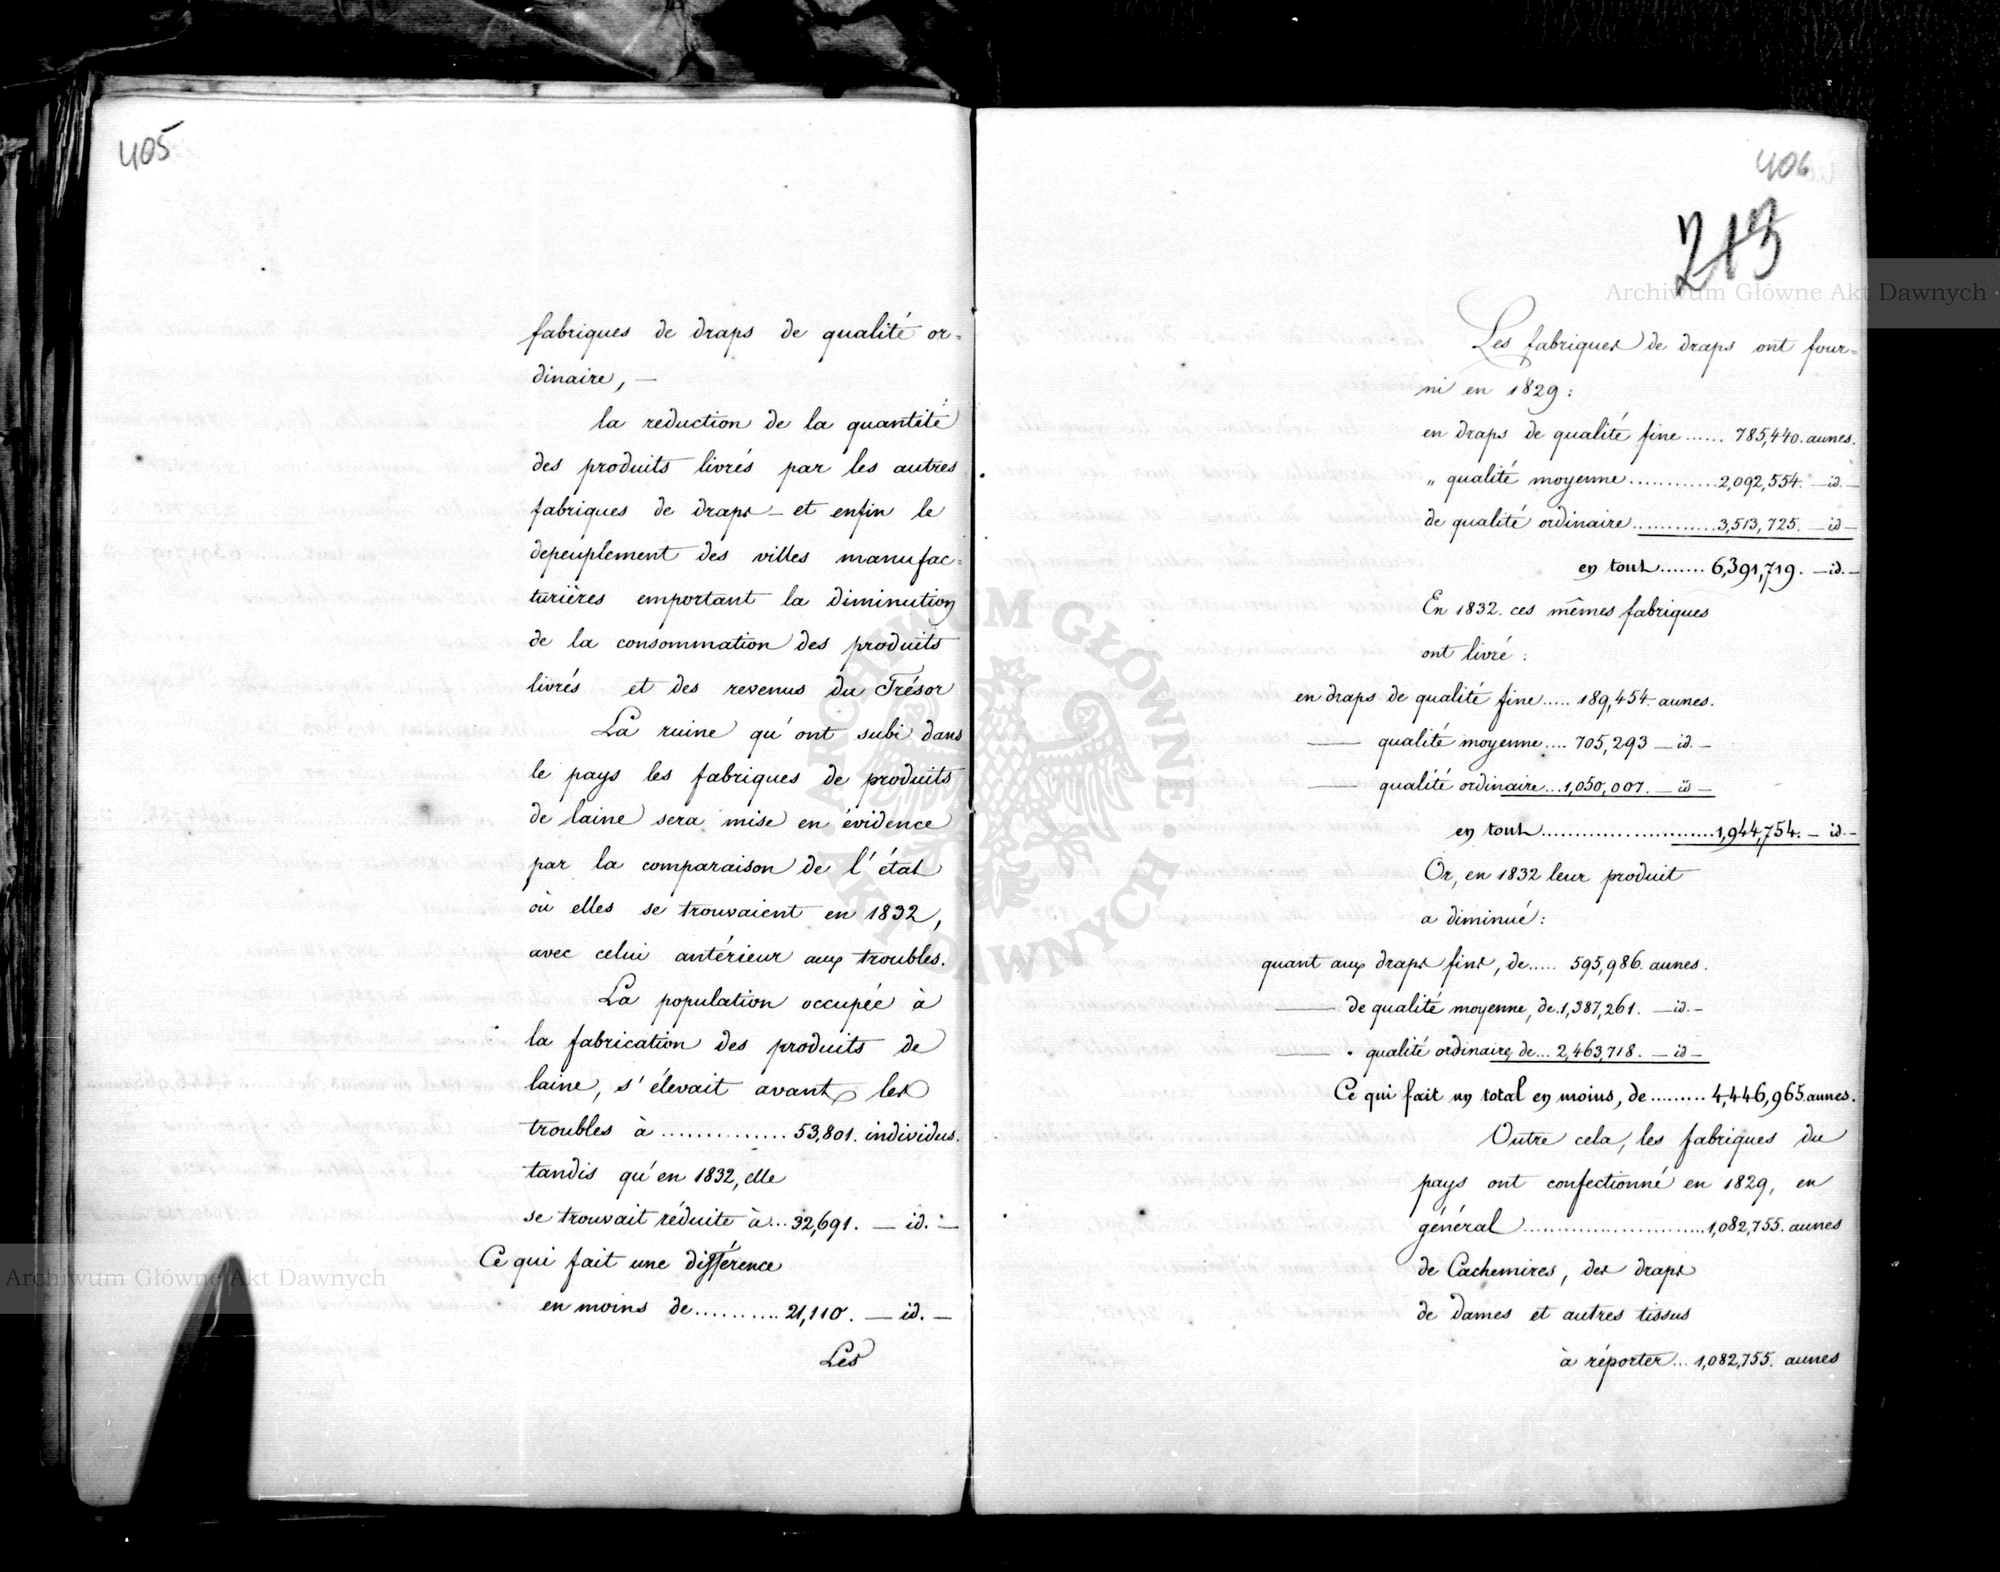 405
fabriques de draps de qualité or-
dinaire, —
la reduction de la quantité
des produits livrés par les autres
fabriques de draps – et enfin le
depeuplement des villes manufac-
turières emportant la diminution
de la consommation des produits
livrés et des revenus du Trésor
La ruine qu'ont subi dans
le pays les fabriques de produits
de laine sera mise en évidence
par la comparaison de l'état
où elles se trouvaient en 1832,
avec celui antérieur aux troubles.
La population occupée à
la fabrication des produits de
laine, s'élevait avant les
troubles à .............. 53,801. individus.
tandis qu'en 1832, elle
se trouvait réduite à... 32,691. — id. —
Ce qui fait une différence
en moins de.......... 21,110. — id. —
Les
406
213
Les fabriques de draps ont four-
ni en 1829:
en draps de qualité fine...... 785,440. aunes.
" qualité moyenne............2,092,554. — id. —
de qualité ordinaire............3,513,725. — id —
en tout....... 6,391,719. — id. —
En 1832. ces mêmes fabriques
ont livré:
en draps de qualité fine..... 189,454. aunes.
— qualité moyenne.... 705,293 — id. —
— qualité ordinaire...1,050,007. — id —
en tout........................1,944,754. — id. —
Or, en 1832 leur produit
a diminué:
quant aux draps fins, de..... 595,986. aunes.
— de qualité moyenne, de.1,387,261. — id. —
— . qualité ordinaire de... 2,463,718. — id —
Ce qui fait un total en moins, de......... 4,446,965. aunes.
Outre cela, les fabriques du
pays ont confectionné en 1829, en
général.........................1,082,755. aunes
de Cachemires, des draps
de dames et autres tissus
à réporter... 1,082,755. aunes
Archiwum Główne Akt Dawnych
Archiwum Główne Akt Dawnych
ARCHIWUM GŁÓWNE · AKT DAWNYCH ·